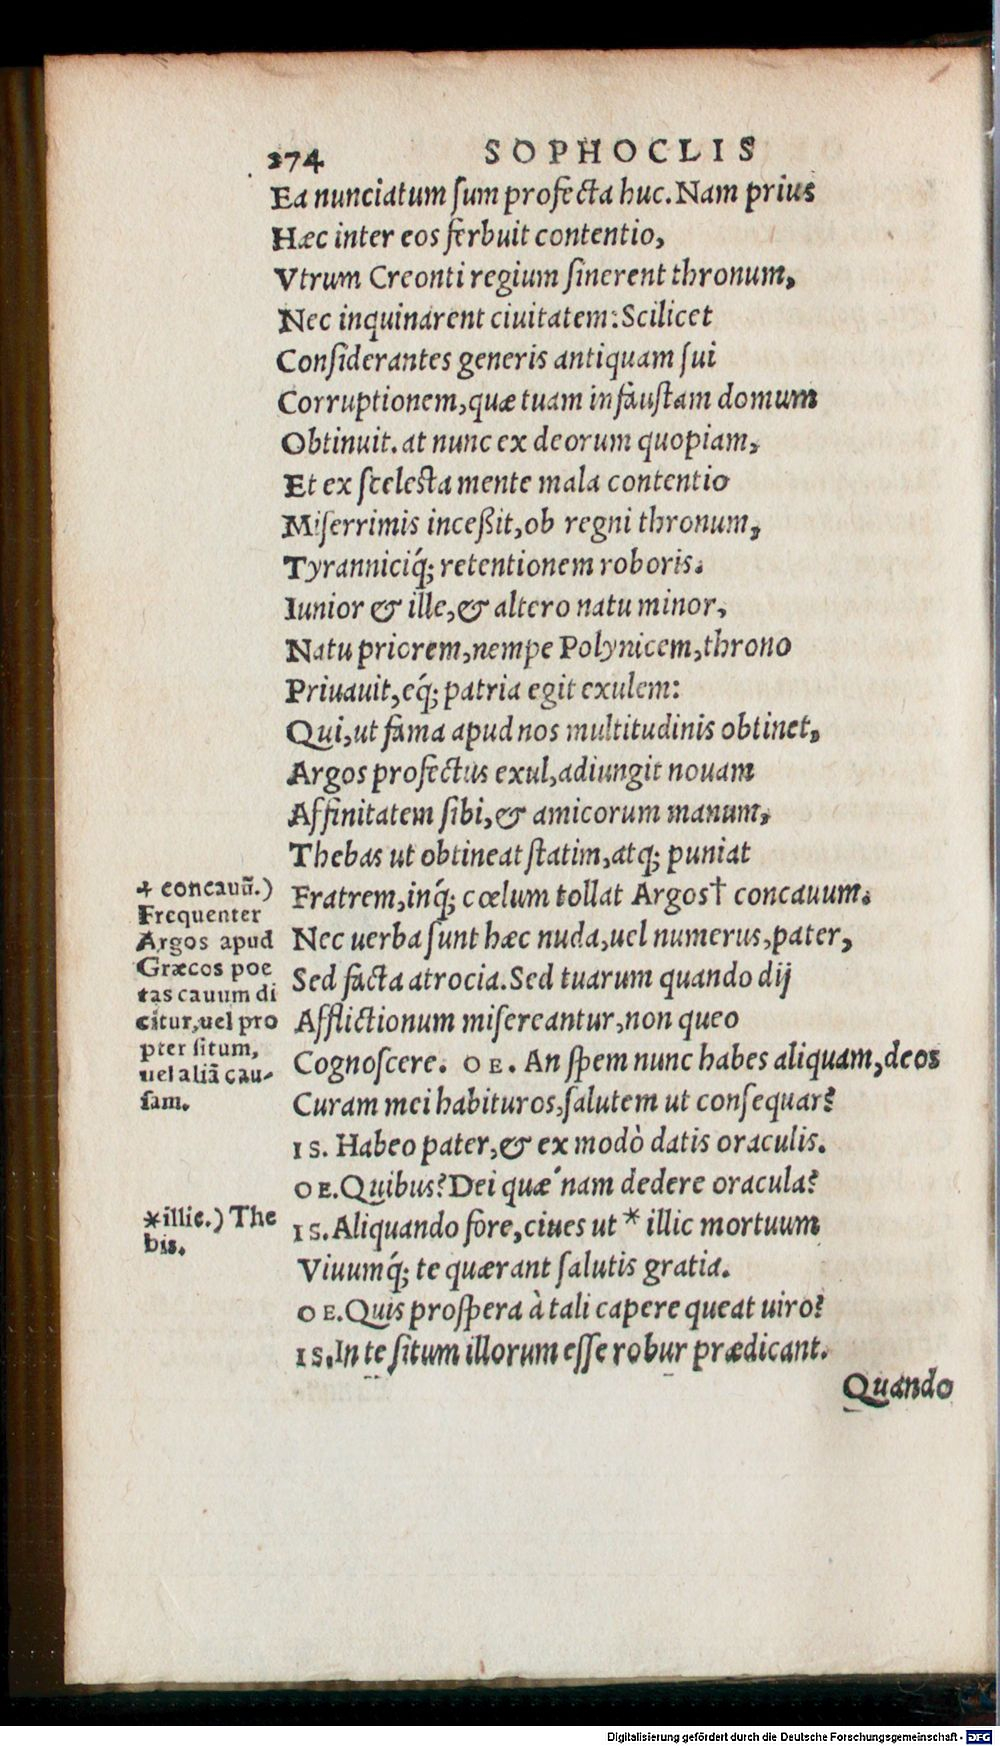 274 SOPHOCLIS
Ea nunciatum ſum profecta huc. Nam prius
Hæc inter eos ferbuit contentio,
Vtrum Creonti regium ſinerent thronum,
Nec inquinarent ciuitatem: Scilicet
Conſiderantes generis antiquam ſui
Corruptionem, quæ tuam infauſtam domum
Obtinuit. at nunc ex deorum quopiam,
Et ex ſceleſta mente mala contentio
Miſerrimis inceßit, ob regni thronum,
Tyranniciq́; retentionem roboris.
Iunior & ille, & altero natu minor,
Natu priorem, nempe Polynicem, throno
Priuauit, eq́; patria egit exulem:
Qui, ut fama apud nos multitudinis obtinet,
Argos profectus exul, adiungit nouam
Affinitatem ſibi, & amicorum manum,
Thebas ut obtineat ſtatim, atq; puniat
Fratrem, inq́; cœlum tollat Argos† concauum.
Nec uerba ſunt hæc nuda, uel numerus, pater,
Sed facta atrocia. Sed tuarum quando dij
Afflictionum miſereantur, non queo
Cognoſcere. OE. An ſpem nunc habes aliquam, deos
Curam mei habituros, ſalutem ut conſequar?
IS. Habeo pater, & ex modò datis oraculis.
OE. Quibus? Dei quæ´nam dedere oracula?
IS. Aliquando fore, ciues ut * illic mortuum
Viuumq́; te quærant ſalutis gratia.
OE. Quis proſpera à tali capere queat uiro?
IS. In te ſitum illorum eſſe robur prædicant.
Quando
† concauũ.)
Frequenter
Argos apud
Græcos poe
tas cauum di
citur, uel pro
pter ſitum,
uel aliã cau-
ſam.
*illic.) The
bis.
Digitalisierung gefördert durch die Deutsche Forschungsgemeinschaft - DFG